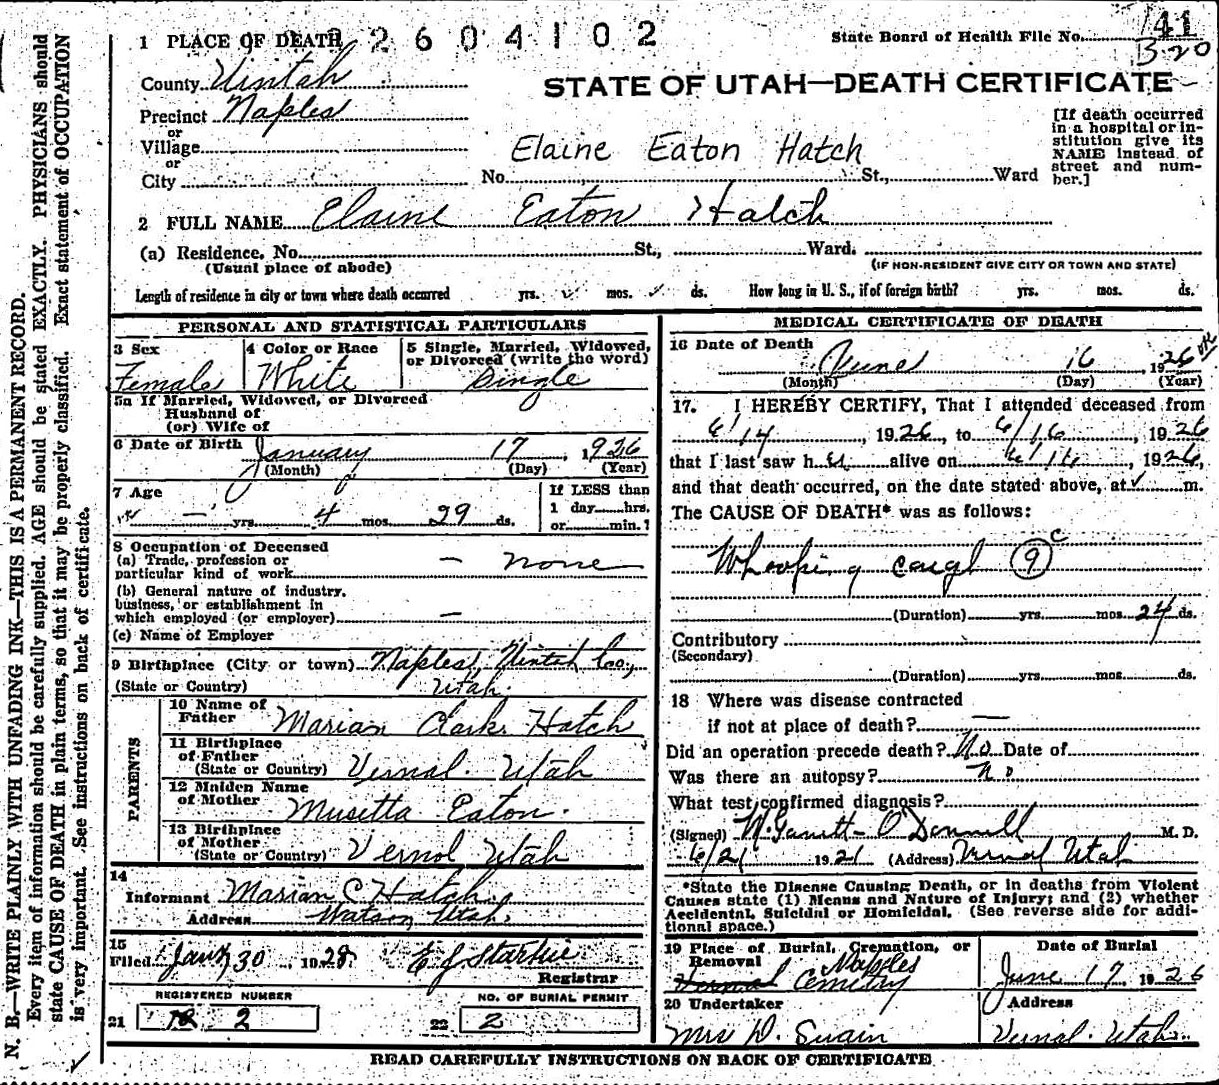 2604102
State Board of Health File No. 41
B-20
1 PLACE OF DEATH
STATE OF UTAH—DEATH CERTIFICATE
County Uintah
Precinct Naples
or
Village
or
City
Elaine Eaton Hatch
No. St., Ward
[If death occurred
in a hospital or in-
stitution give its
NAME instead of
street and num-
ber.]
2 FULL NAME Elaine Eaton Hatch
(a) Residence. No. St., Ward.
(Usual place of abode) (IF NON-RESIDENT GIVE CITY OR TOWN AND STATE)
Length of residence in city or town where death occurred yrs. mos. ds. How long in U. S., if of foreign birth? yrs. mos. ds.
PERSONAL AND STATISTICAL PARTICULARS
3 Sex Female
4 Color or Race White
5 Single, Married, Widowed,
or Divorced (write the word)
Single
5a If Married, Widowed, or Divorced
Husband of
(or) Wife of
6 Date of Birth January 17, 1926
(Month) (Day) (Year)
7 Age
— yrs. 4 mos. 29 ds.
If LESS than
1 day hrs.
or min.?
8 Occupation of Deceased
(a) Trade, profession or
particular kind of work — none
(b) General nature of industry,
business, or establishment in
which employed (or employer) —
(c) Name of Employer
9 Birthplace (City or town) Naples, Uintah Co.,
(State or Country) Utah.
PARENTS
10 Name of
Father Marian Clark Hatch
11 Birthplace
of Father
(State or Country) Vernal. Utah
12 Maiden Name
of Mother Musetta Eaton.
13 Birthplace
of Mother
(State or Country) Vernol Utah
14
Informant Marian C Hatch
Address Watson Utah.
15
Filed Jan 30, 1928 E J Starkie
Registrar
REGISTERED NUMBER
21 2
NO. OF BURIAL PERMIT
22 2
MEDICAL CERTIFICATE OF DEATH
16 Date of Death
June 16 1926
(Month) (Day) (Year)
17. I HEREBY CERTIFY, That I attended deceased from
6/14, 1926, to 6/16, 1926
that I last saw her alive on 6/16, 1926,
and that death occurred, on the date stated above, at m.
The CAUSE OF DEATH* was as follows:
Whooping cough 9 c
(Duration) yrs. mos. 24 ds.
Contributory
(Secondary)
(Duration) yrs. mos. ds.
18 Where was disease contracted
if not at place of death? —
Did an operation precede death? No Date of
Was there an autopsy? no
What test confirmed diagnosis?
(Signed) O'Donnell M. D.
6/21 1921 (Address) Vernal Utah
*State the Disease Causing Death, or in deaths from Violent
Causes state (1) Means and Nature of Injury; and (2) whether
Accidental, Suicidal or Homicidal. (See reverse side for addi-
tional space.)
19 Place of Burial, Cremation, or
Removal Naples
Vernal Cemetry
Date of Burial
June 17, 1926
20 Undertaker
Mrs D. Swain
Address
Vernal. Utah.
READ CAREFULLY INSTRUCTIONS ON BACK OF CERTIFICATE
N. B.—WRITE PLAINLY WITH UNFADING INK—THIS IS A PERMANENT RECORD.
Every item of information should be carefully supplied. AGE should be stated EXACTLY. PHYSICIANS should
state CAUSE OF DEATH in plain terms, so that it may be properly classified. Exact statement of OCCUPATION
is very important. See instructions on back of certificate.